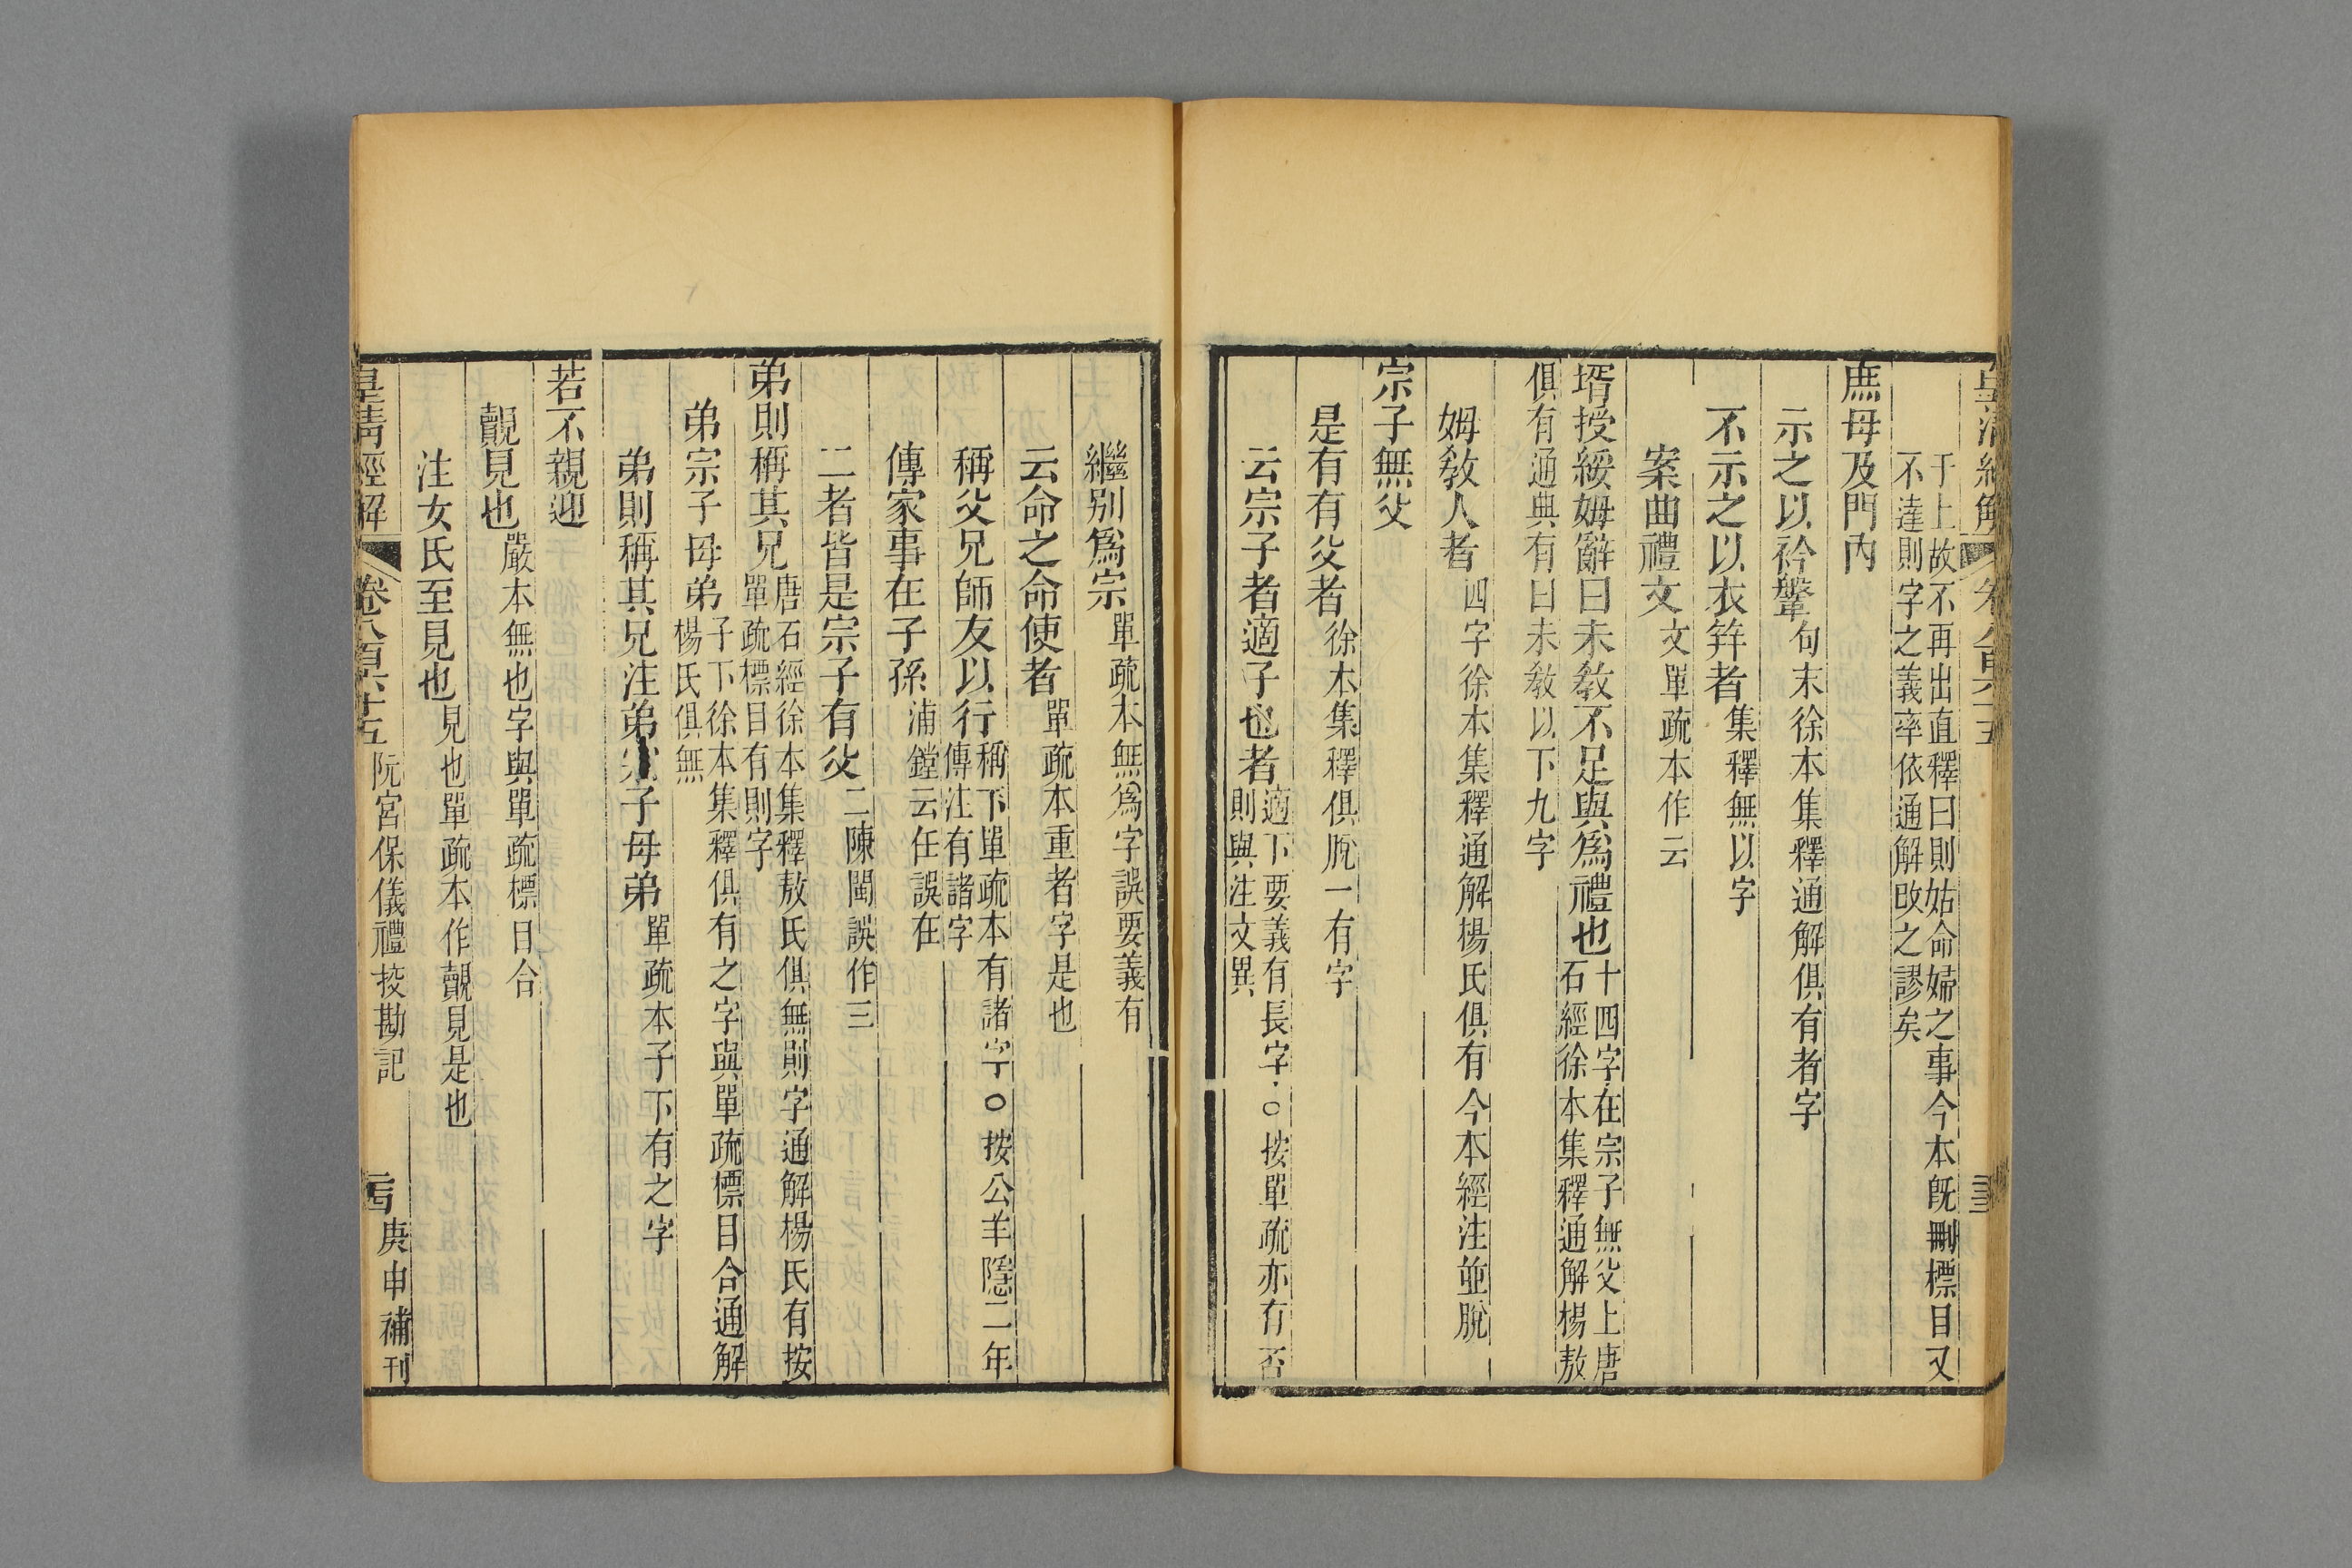 于上故不再出直釋曰則姑命婦之事今本既刪標目又
不達則字之義率依通解改之謬矣
庶母及門內
示之以衿鞶句末徐本集釋通解俱有者字
不示之以衣筓者集釋無以字
案曲禮文文單疏本作云
壻授綏姆辭曰未敎不足與爲禮也十四字在宗子無父上唐
石經徐本集釋通解楊敖
俱有通典有曰未敎以下九字
姆敎人者四字徐本集釋通解楊氏俱有今本經注並脫
宗子無父
是有有父者徐本集釋俱脫一有字
云宗子者適子也者適下要義有長字○按單疏亦有否
則與注文異
繼別爲宗單疏本無爲字誤要義有
云命之命使者單疏本重者字是也
稱父兄師友以行稱下單疏本有諸字○按公羊隱二年
傳注有諸字
傳家事在子孫浦鏜云任誤在
二者皆是宗子有父二陳閩誤作三
弟則稱其兄唐石經徐本集釋敖氏俱無則字通解楊氏有按
單疏標目有則字
弟宗子母弟子下徐本集釋俱有之字與單疏標目合通解
楊氏俱無
弟則稱其兄注弟宗子母弟單疏本子下有之字
若不親迎
覿見也嚴本無也字與單疏標目合
注女氏至見也見也單疏本作覿見是也
皇清經解 卷八百六十五 阮宮保儀禮挍勘記 庚申補刊